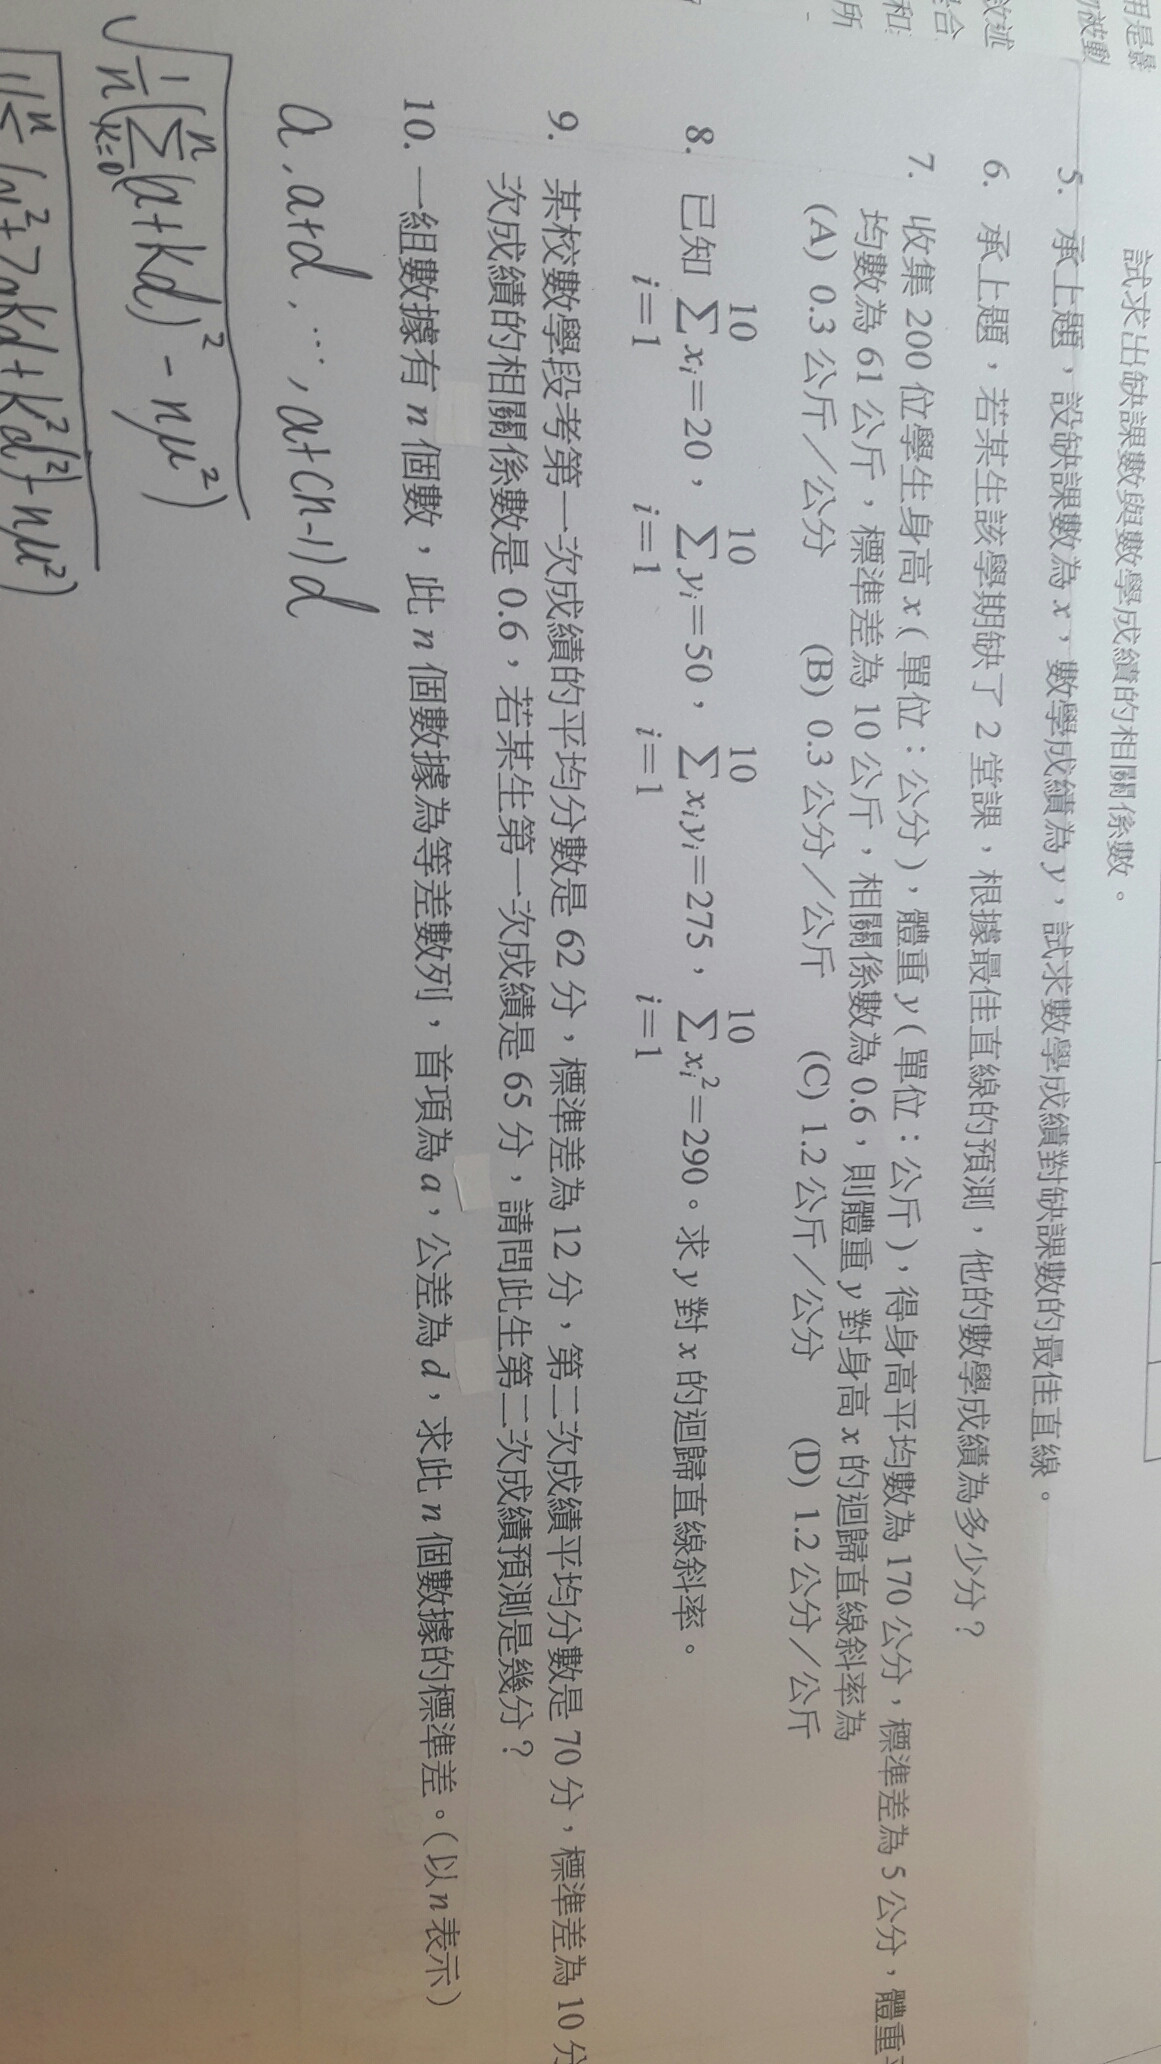 用是影
被動
敘述
合
和
所
試求出缺課數與數學成績的相關係數。
5. 承上題，設缺課數為 x，數學成績為 y，試求數學成績對缺課數的最佳直線。
6. 承上題，若某生該學期缺了 2 堂課，根據最佳直線的預測，他的數學成績為多少分？
7. 收集 200 位學生身高 x（單位：公分），體重 y（單位：公斤），得身高平均數為 170 公分，標準差為 5 公分，體重
均數為 61 公斤，標準差為 10 公斤，相關係數為 0.6，則體重 y 對身高 x 的迴歸直線斜率為
(A) 0.3 公斤／公分 (B) 0.3 公分／公斤 (C) 1.2 公斤／公分 (D) 1.2 公分／公斤
8. 已知 \sum_{i=1}^{10} x_i=20，\sum_{i=1}^{10} y_i=50，\sum_{i=1}^{10} x_iy_i=275，\sum_{i=1}^{10} x_i^2=290。求 y 對 x 的迴歸直線斜率。
9. 某校數學段考第一次成績的平均分數是 62 分，標準差為 12 分，第二次成績平均分數是 70 分，標準差為 10 分
次成績的相關係數是 0.6，若某生第一次成績是 65 分，請問此生第二次成績預測是幾分？
10. 一組數據有 n 個數，此 n 個數據為等差數列，首項為 a，公差為 d，求此 n 個數據的標準差。（以 n 表示）
a, a+d, ..., a+(n-1)d
\sqrt{\frac{1}{n}(\sum_{k=0}^{n}(a+kd)^2-nμ^2)}
(a^2+2akd+k^2d^2)-nμ^2)